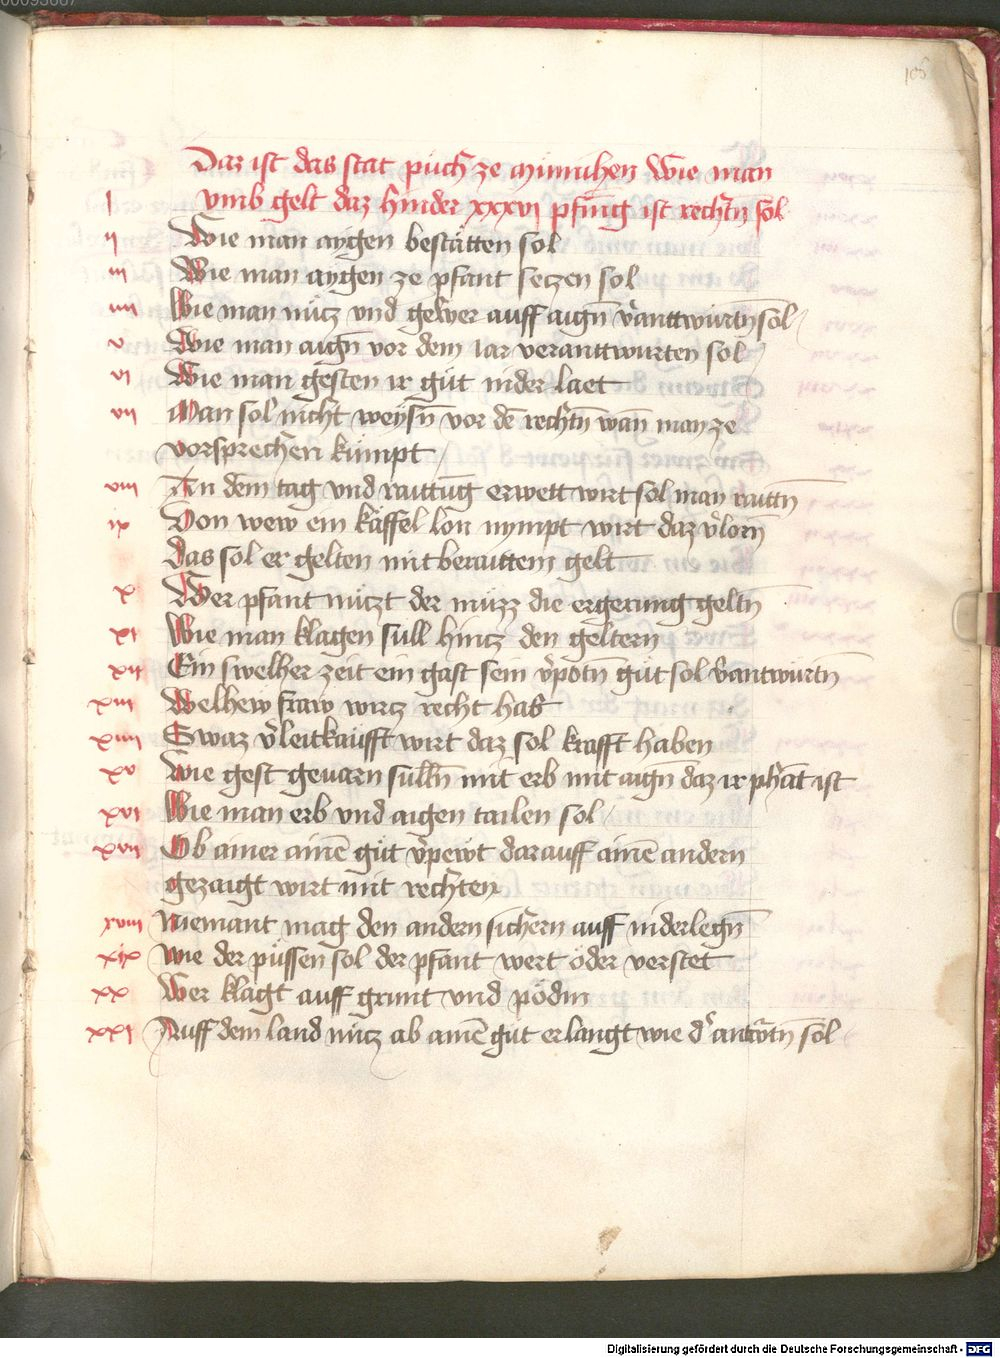 105
Daz ist das stat puch ze münichen Wie man
I vmb gelt daz hinder xxxvj pfenng ist rechtñ sol
ij Wie man aygen bestätten sol
iij Wie man aygen ze pfant setzen sol
iiij Wie man nütz vnd gewer auff aigñ v̄anttwürtñ sol
v Wie man aigñ vor dem Iar veranttwurten sol
vi Wie man gesten ir güt nider laet
vii Man sol nicht weysñ vor dē rechtñ wañ man ze
vorsprechen kümpt
viii An dem tag vnd raittūg erwett wirt sol man raittñ
ix Von wew ein käffel lon nympt wirt daz v̄lorñ
Das sol er gelten mit beraittem gelt
x Wer pfant nützt der müzz die ergerung geltñ
xi Wie man klagen süll hintz den geltern
xii Ein swelher zeit ein gast sein v̄potñ güt sol v̄antwürtñ
xiii Welhew fraw wirtz recht hab
xiiii Swaz v̄leitkaufft wirt daz sol krafft haben
xv Wie gest geuarn sullñ mit erb mit aigñ daz ir phāt ist
xvi Wie man erb vnd aigen tailen sol
xvii Ob ainer ainē güt v̄pewt darauff ainē andern
gezaigt wirt mit rechten
xviii Niemant mag den andern sichern auff niderlegñ
xix Wie der püssen sol der pfant wert oder verstet
xx Wer klagt auff grunt vnd pödm
xxi Auff dem land nütz ab ainē güt erlangt wie d' antw̄tñ sol
Digitalisierung gefördert durch die Deutsche Forschungsgemeinschaft - DFG